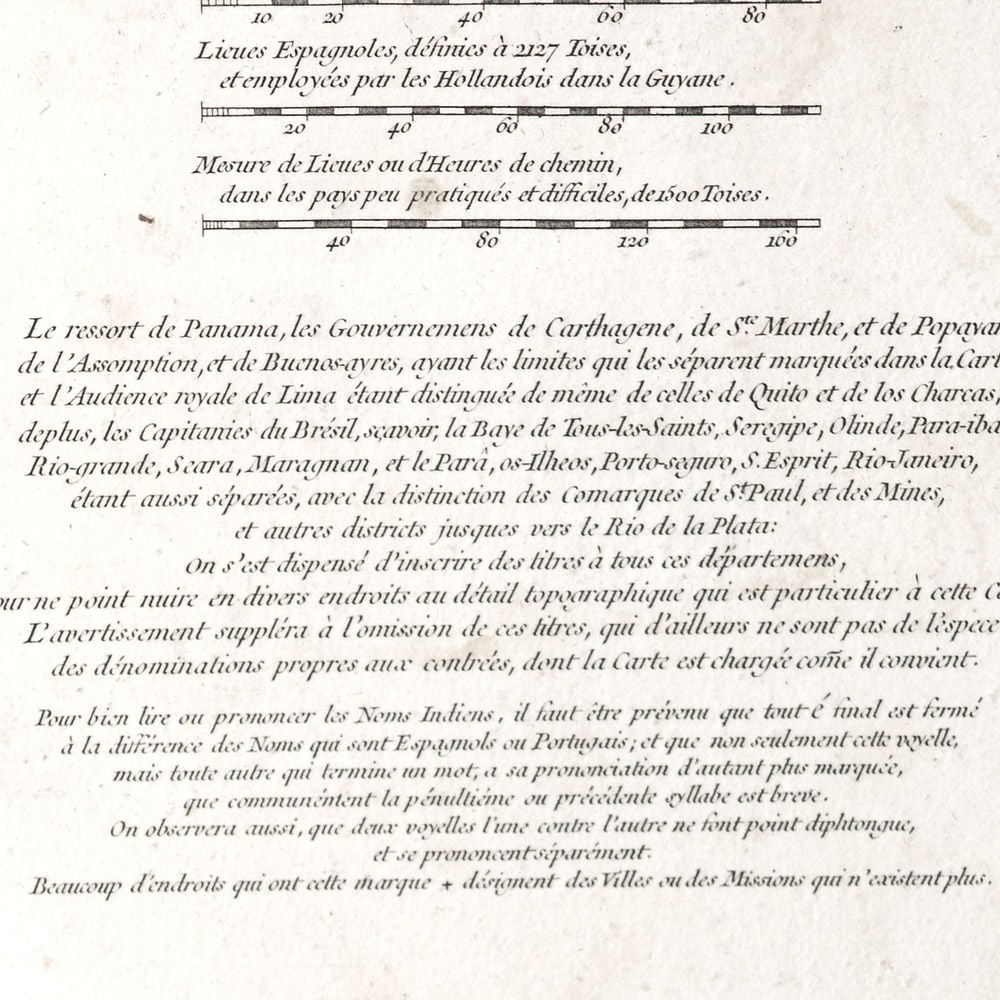 10 20 40 60 80
Lieues Espagnoles, définies à 2127 Toises,
et employées par les Hollandois dans la Guyane.
20 40 60 80 100
Mesure de Lieues ou d'Heures de chemin,
dans les pays peu pratiqués et difficiles, de 1500 Toises.
40 80 120 160
Le ressort de Panama, les Gouvernemens de Carthagene, de Ste. Marthe, et de Popayan
de l'Assomption, et de Buenos-ayres, ayant les limites qui les séparent marquées dans la Cart
et l'Audience royale de Lima étant distinguée de même de celles de Quito et de los Charcas,
deplus, les Capitanies du Brésil, sçavoir, la Baye de Tous-les-Saints, Seregipe, Olinde, Para-iba
Rio-grande, Seara, Maragnan, et le Parâ, os-Ilheos, Porto-seguro, S. Esprit, Rio-Janeiro,
étant aussi séparées, avec la distinction des Comarques de St. Paul, et des Mines,
et autres districts jusques vers le Rio de la Plata:
On s'est dispensé d'inscrire des titres à tous ces départemens,
our ne point nuire en divers endroits au détail topographique qui est particulier à cette C
L'avertissement suppléra à l'omission de ces titres, qui d'ailleurs ne sont pas de l'éspece
des dénominations propres aux contrées, dont la Carte est chargée com̃e il convient.
Pour bien lire ou prononcer les Noms Indiens, il faut être prévenu que tout é final est fermé
à la différence des Noms qui sont Espagnols ou Portugais; et que non seulement cette voyelle,
mais toute autre qui termine un mot, a sa prononciation d'autant plus marquée,
que communément la pénultiéme ou précédente syllabe est breve.
On observera aussi, que deux voyelles l'une contre l'autre ne font point diphtongue,
et se prononcent séparément.
Beaucoup d'endroits qui ont cette marque + désignent des Villes ou des Missions qui n'existent plus.